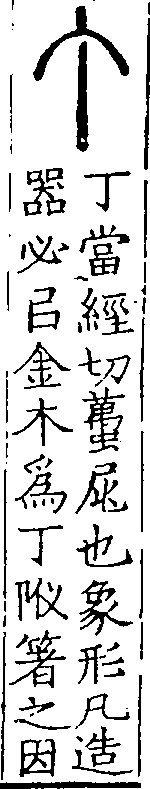 丁當經切蠆尾也象形凡造
器必㠯金木爲丁附箸之因